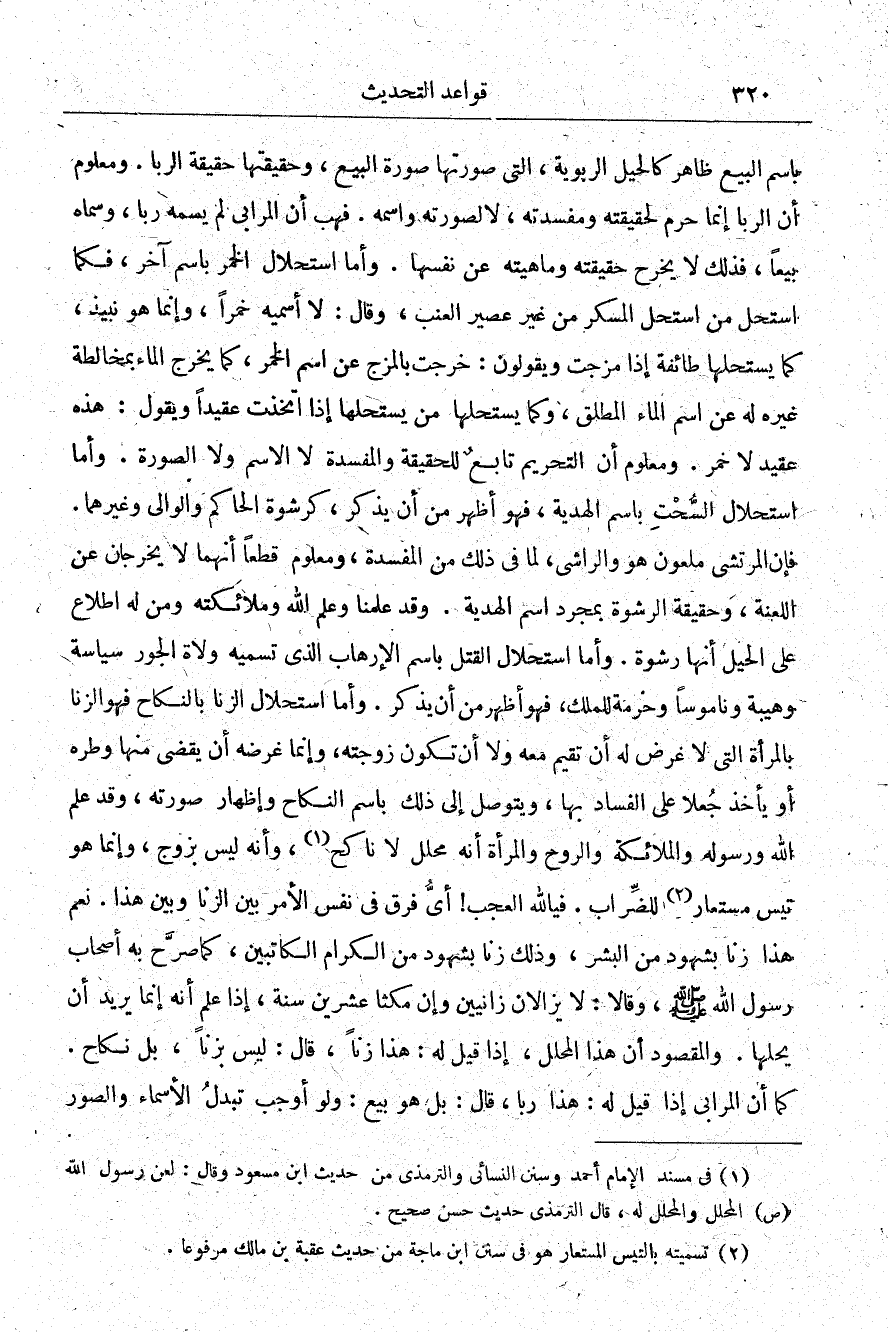 ٣٢٠ قواعد التحديث
باسم البيع ظاهر كالحيل الربوية ، التى صورتها صورة البيع ، وحقيقتها حقيقة الربا . ومعلوم
أن الربا إنما حرم لحقيقته ومفسدته ، لالصورته واسمه . فهب أن المرابى لم يسمه ربا ، وسماه
بيعاً ، فذلك لا يخرح حقيقته وماهيته عن نفسها . وأما استحلال الخمر باسم آخر ، فكما
استحل من استحل المسكر من غير عصير العنب ، وقال : لا أسميه خمراً ، وإنما هو نبيذ ،
كما يستحلها طائفة إذا مزجت ويقولون : خرجت بالمزج عن اسم الخمر ، كما يخرج الماء بمخالطة
غيره له عن اسم الماء المطلق ، وكما يستحلها من يستحلها إذا اتخذت عقيداً ويقول : هذه
عقيد لا خمر . ومعلوم أن التحريم تابع للحقيقة والمفسدة لا الاسم ولا الصورة . وأما
استحلال السُّحْتِ باسم الهدية ، فهو أظهر من أن يذكر ، كرشوة الحاكم والوالى وغيرهما.
فإن المرتشى ملعون هو والراشى، لما فى ذلك من المفسدة ، ومعلوم قطعاً أنهما لا يخرجان عن
اللعنة ، وحقيقة الرشوة بمجرد اسم الهدية . وقد علمنا وعلم الله وملائكته ومن له اطلاع
على الحيل أنها رشوة . وأما استحلال القتل باسم الإرهاب الذى تسميه ولاة الجور سياسة
وهيبة وناموساً وحرمة للملك، فهو أظهر من أن يذكر . وأما استحلال الزنا بالنكاح فهو الزنا
بالمرأة التى لا غرض له أن تقيم معه ولا أن تكون زوجته، وإنما غرضه أن يقضى منها وطره
أو يأخذ جُعلا على الفساد بها ، ويتوصل إلى ذلك باسم النكاح وإظهار صورته ، وقد علم
الله ورسوله والملائكة والروح والمرأة أنه محلل لا ناكح (١) ، وأنه ليس بزوج ، وإنما هو
تيس مستعار (٢) للضِّراب . فيالله العجب! أىُّ فرق فى نفس الأمر بين الزنا وبين هذا . نعم
هذا زنا بشهود من البشر ، وذلك زنا بشهود من الكرام الكاتبين ، كما صرَّح به أصحاب
رسول الله ﷺ ، وقالا : لا يزالان زانيين وإن مكثا عشرين سنة ، إذا علم أنه إنما يريد أن
يحلها . والمقصود أن هذا المحلل ، إذا قيل له : هذا زناً ، قال : ليس بزناً ، بل نكاح .
كما أن المرابى إذا قيل له : هذا ربا ، قال : بل هو بيع : ولو أوجب تبدلُ الأسماء والصور
(١) فى مسند الإمام أحمد وسنن النسائى والترمذى من حديث ابن مسعود وقال : لعن رسول الله
(ص) المحلل والمحلل له ، قال الترمذى حديث حسن صحيح .
(٢) تسميته بالتيس المستعار هو فى سنن ابن ماجة من حديث عقبة بن مالك مرفوعا .